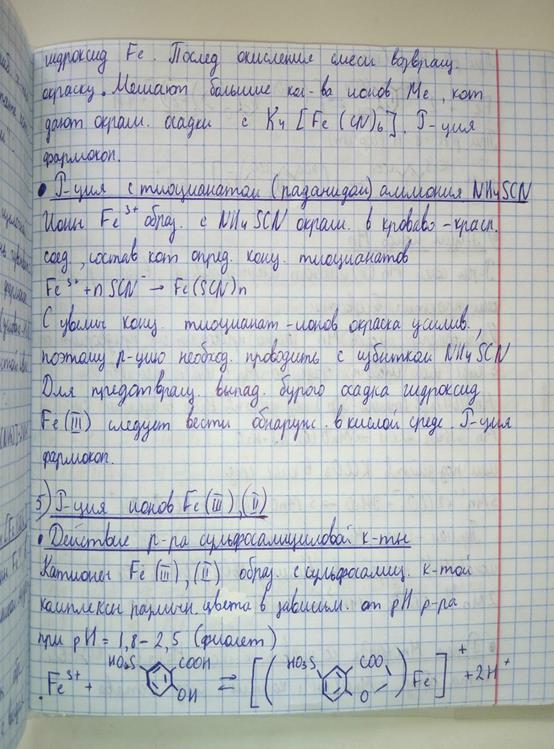 гидроксид Fe. Послед окисление смеси возвращ.
окраску. Мешают большие кол-ва ионов Me, кот
дают окраш. осадки с K4 [Fe(CN)6]. Р-ция
фармокоп.
• Р-ция с тиоцианатом (роданидом) аммония NH4SCN
Ионы Fe3+ образ. с NH4SCN окраш. в кроваво-красн.
соед, состав кот опред. конц. тиоцианатов
Fe3+ + n SCN- → Fe(SCN)n
С увелич конц. тиоцианат-ионов окраска усилив.,
поэтому р-цию необход. проводить с избытком NH4SCN
Для предотвращ. выпад. бурого осадка гидроксид
Fe(III) следует вести обнаруж. в кислой среде. Р-ция
фармокоп.
5) Р-ция ионов Fe(III),(II)
• Действие р-ра сульфосалициловой к-ты
Катионы Fe(III),(II) образ. с сульфосалиц. к-той
комплексы различн. цвета в зависим. от pH р-ра
при pH = 1,8-2,5 (фиолет)
Fe3+ + HO3S COOH OH ⇄ [( HO3S COO O ) Fe]+ + 2H+